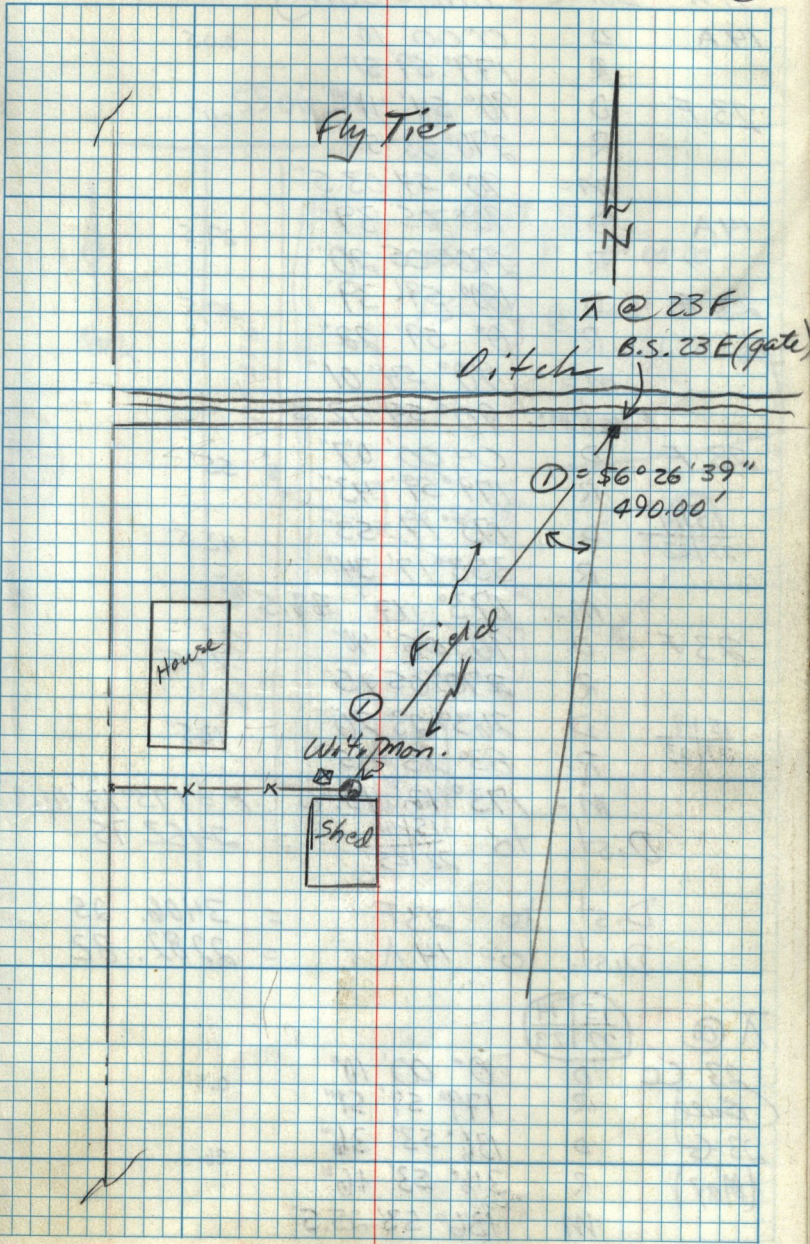 Fly Tie
N
⊼ @ 23F
B.S. 23E (gate)
Ditch
① = 56° 26' 39"
490.00'
House
Field
①
Wit. Mon.
Shed